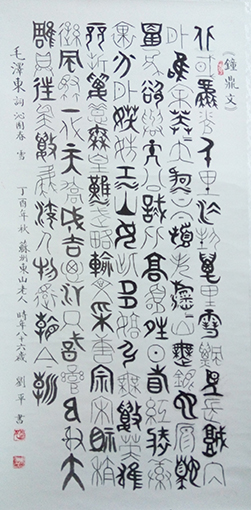 (鐘鼎文)
北國風光千里冰封萬里雪飄望長城內
外惟餘莽莽大河上下頓失滔滔山舞銀蛇原馳
蠟象欲與天公試比高須晴日看紅裝素
裹分外妖嬈江山如此多嬌引無數英雄
競折腰惜秦皇漢武略輸文采唐宗宋祖稍
遜風騷一代天驕成吉思汗只識彎弓射大
雕俱往矣數風流人物還看今朝
毛澤東詞 沁園春 雪 丁酉年秋 蘇州東山老人 時年八十六歲 劉單書